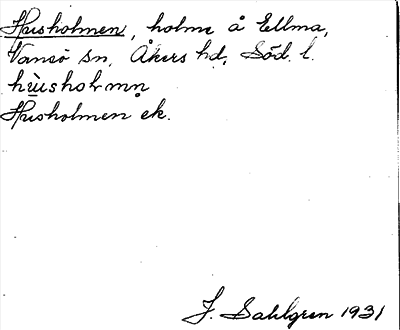 Husholmen, holme å Ellma,
Vansö sn, Åkers hd, Söd. l.
hùsholmn̥
Husholmen ek.
J. Sahlgren 1931